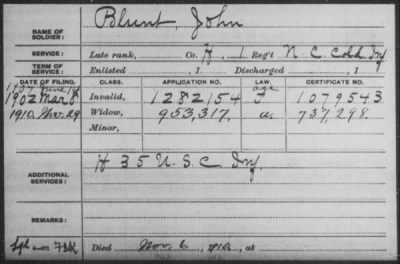 NAME OF SOLDIER: Blunt, John
SERVICE: Late rank, Co. H, 1 Reg't N. C. Cold Inf
TERM OF SERVICE: Enlisted , 1 Discharged , 1
DATE OF FILING. CLASS. APPLICATION NO. LAW. CERTIFICATE NO.
1907 June
1902 Mar 8 Invalid, 1282154 age 1079543
1910, Nov. 29 Widow, 953,317, a. 737,298.
Minor,
ADDITIONAL SERVICES: H 35 U. S. C. Inf.
REMARKS:
Died Nov. 6, 1910, at